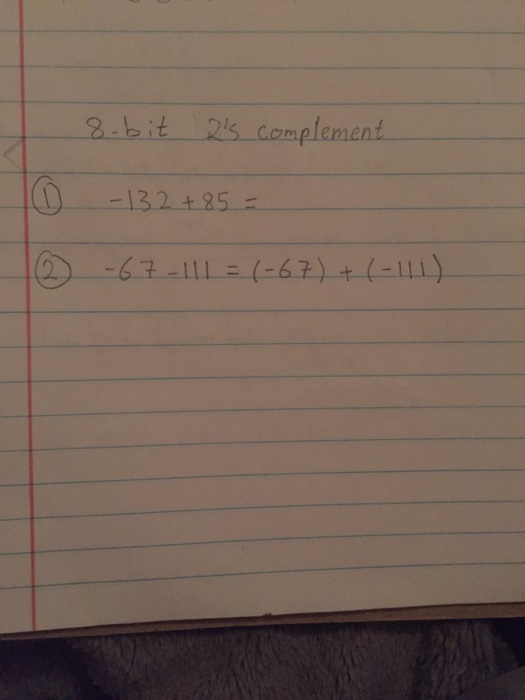 8-bit 2's complement
① -132 + 85 =
② -67 - 111 = (-67) + (-111)